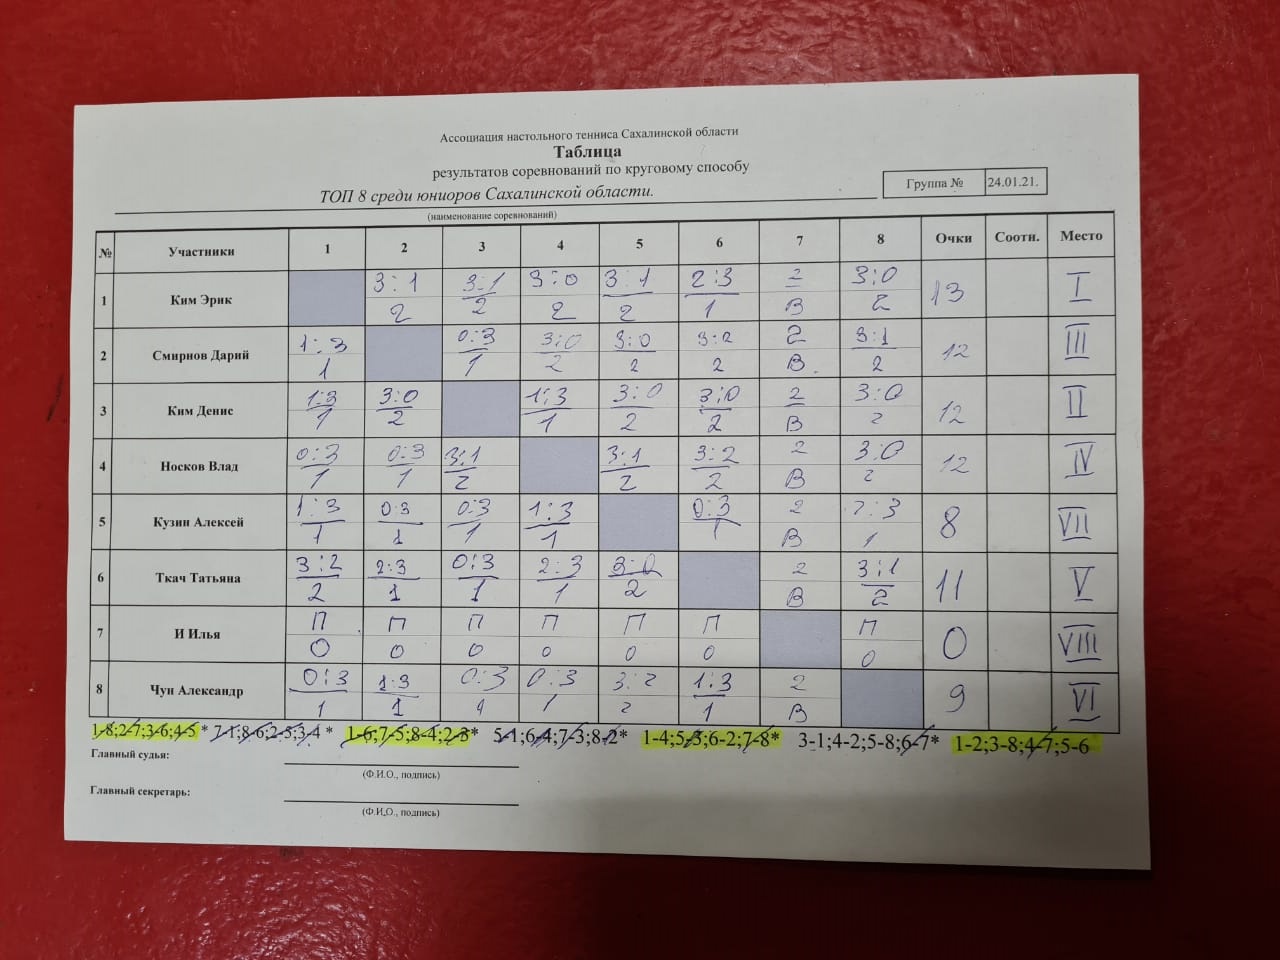 Ассоциация настольного тенниса Сахалинской области
Таблица
результатов соревнований по круговому способу
ТОП 8 среди юниоров Сахалинской области.
(наименование соревнований)
Группа № 24.01.21.
№ Участники 1 2 3 4 5 6 7 8 Очки Соотн. Место
3:1 3:1 3:0 3:1 2:3 2 3:0
1 Ким Эрик 13 I
2 2 2 2 1 В 2
1:3 0:3 3:0 3:0 3:2 2 3:1
2 Смирнов Дарий 12 III
1 1 2 2 2 В 2
1:3 3:0 1:3 3:0 3:0 2 3:0
3 Ким Денис 12 II
1 2 1 2 2 В 2
0:3 0:3 3:1 3:1 3:2 2 3:0
4 Носков Влад 12 IV
1 1 2 2 2 В 2
1:3 0:3 0:3 1:3 0:3 2 :3
5 Кузин Алексей 8 VII
1 1 1 1 1 В 1
3:2 2:3 0:3 2:3 3:0 2 3:1
6 Ткач Татьяна 11 V
2 1 1 1 2 В 2
П П П П П П П
7 И Илья 0 VIII
0 0 0 0 0 0 0
0:3 1:3 0:3 0:3 3:2 1:3 2
8 Чун Александр 9 VI
1 1 1 1 2 1 В
1-8;2-7;3-6;4-5 * 7-1;8-6;2-5;3-4 * 1-6;7-5;8-4;2-3* 5-1;6-4;7-3;8-2* 1-4;5-3;6-2;7-8* 3-1;4-2;5-8;6-7* 1-2;3-8;4-7;5-6
Главный судья:
(Ф.И.О., подпись)
Главный секретарь:
(Ф.И.О., подпись)